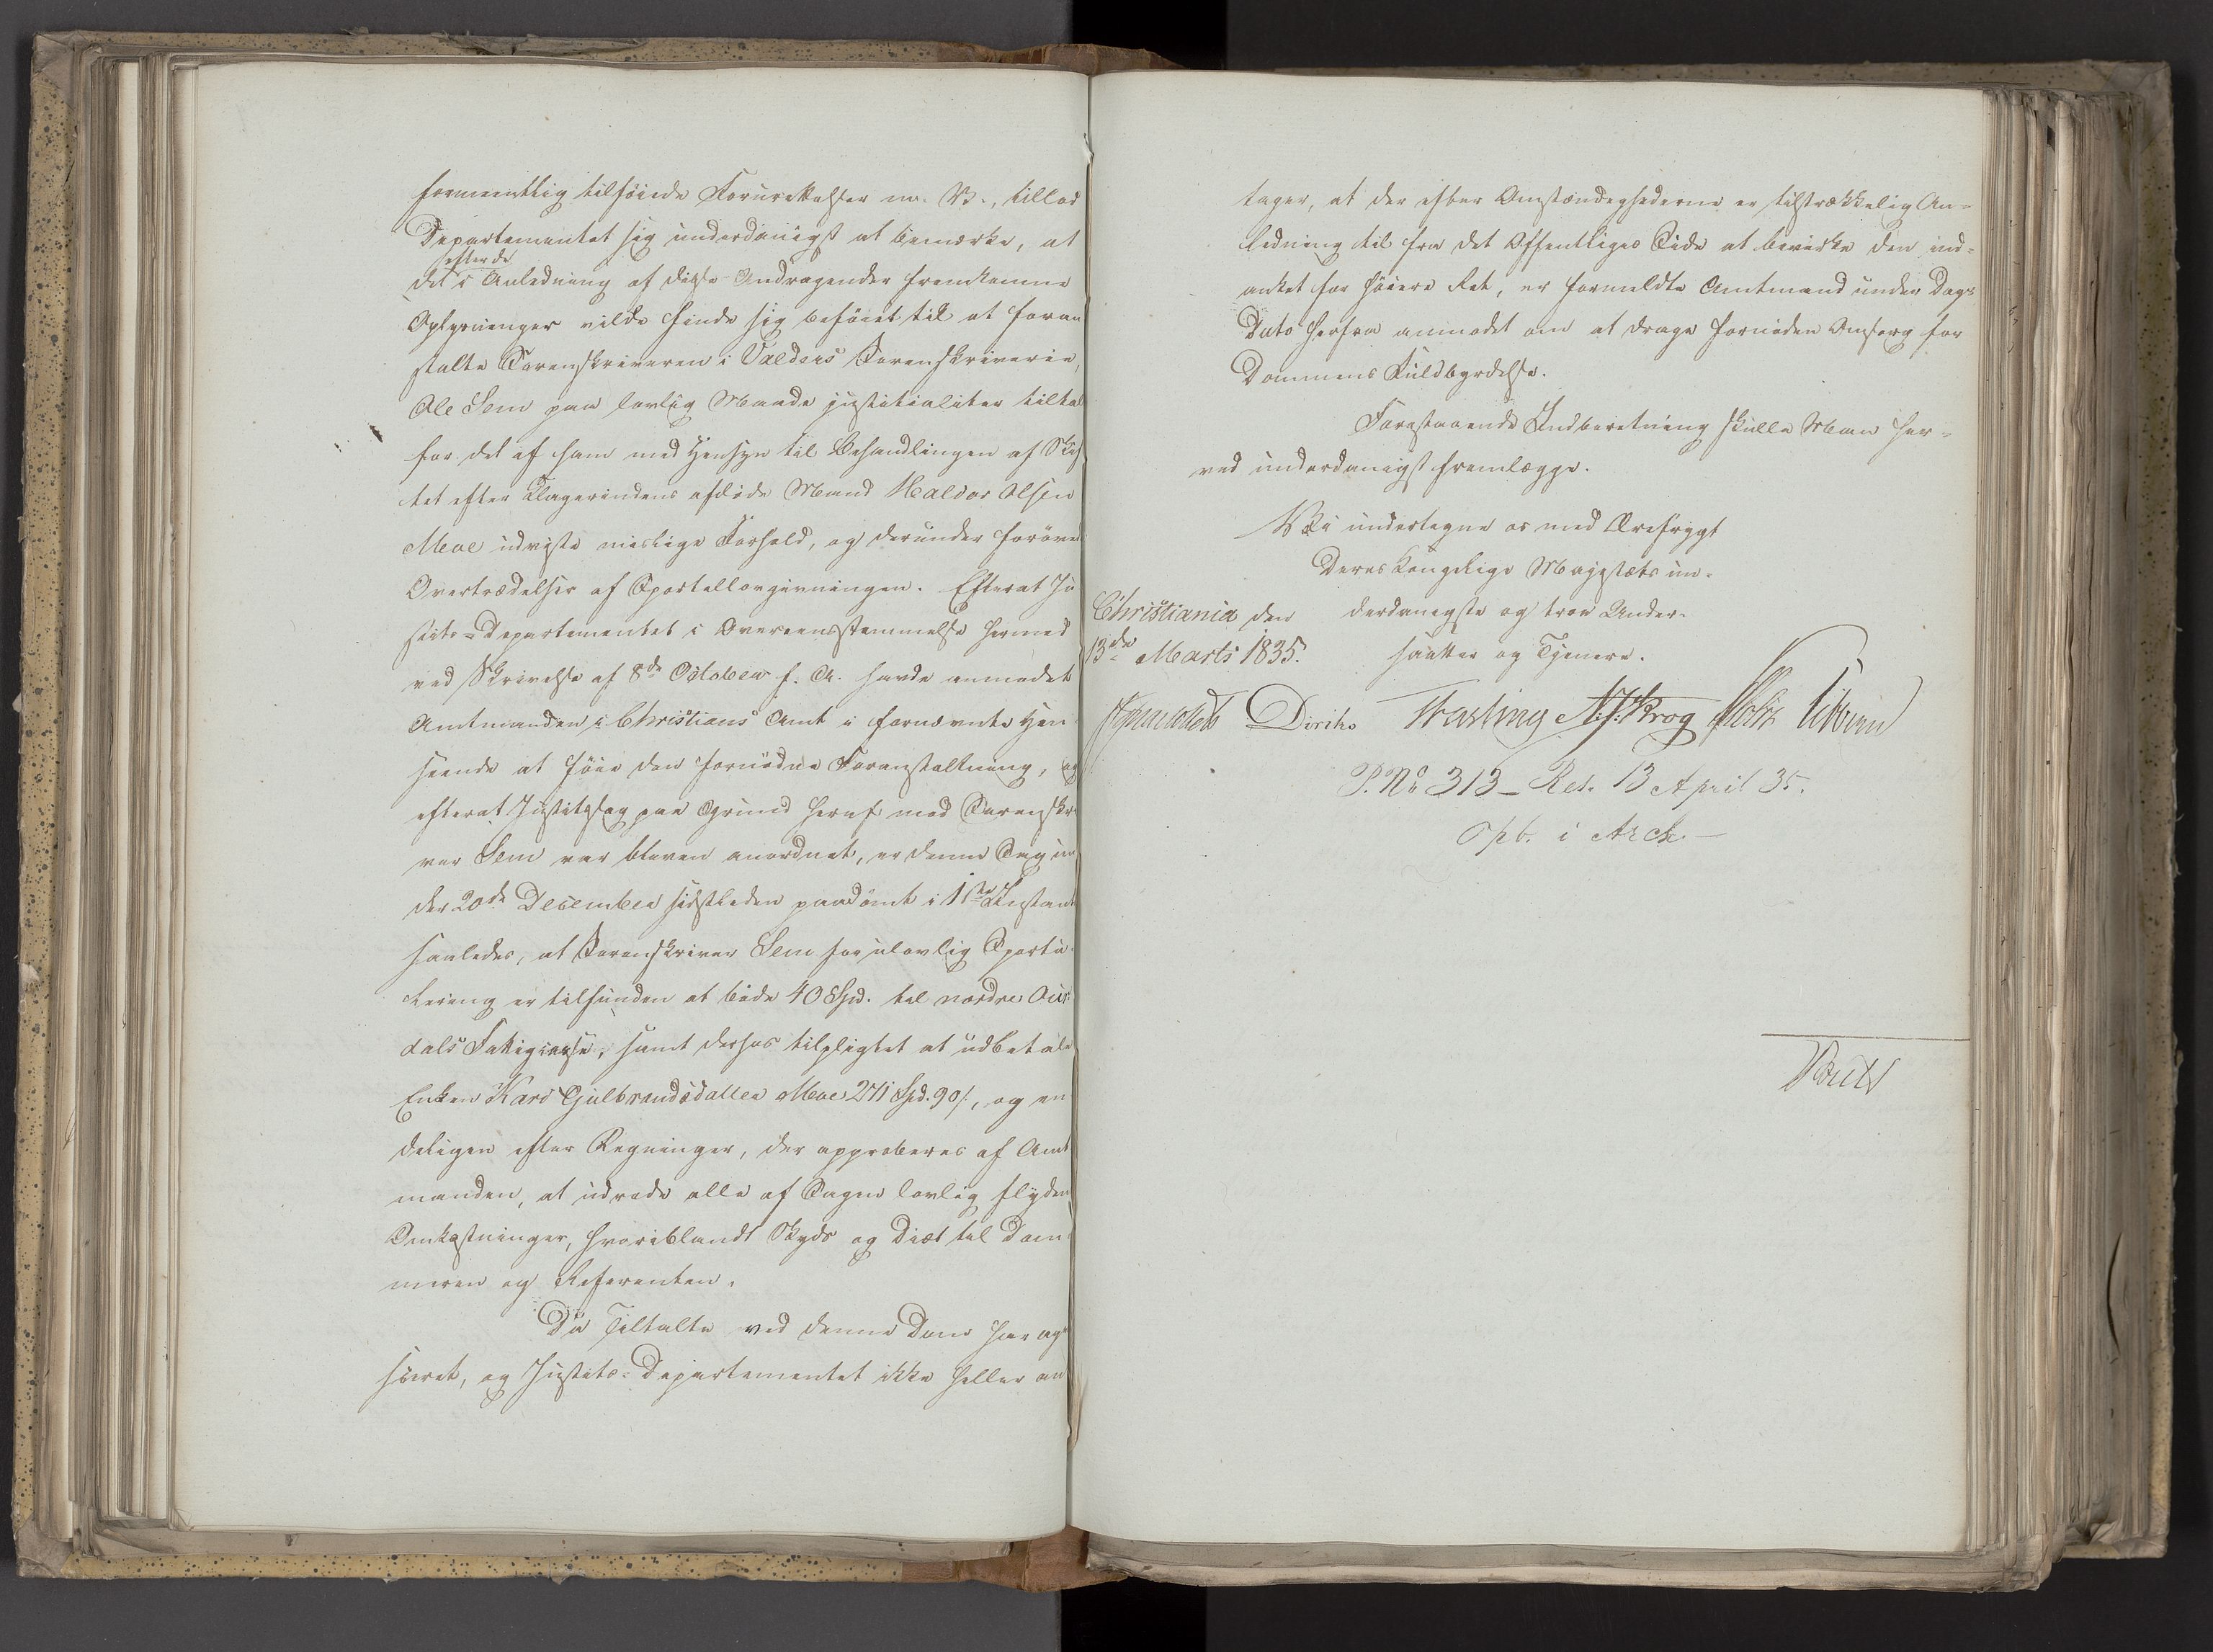 formeentlig tilføiede Forurettelser m. V., tillod
Departementet sig underdanigst at bemærke, at
efter de
det i Anledning af disse Andragender fremkomne
Oplysninger vilde finde sig beføiet til at foran
stalte Sorenskriveren i Valders Sorenskriverie,
Ole Sem paa lovlig Maade justitialiter tiltal
for det af ham med Hensyn til Behandlingen af Skif
tet efter Klagerindens afdøde Mand Haldor Olsen
Moe udviste mislige Forhold, og derunder forøvede
Overtrædelser af Sportellovgivningen. Efterat Ju
stits-Departementet i Overeensstemmelse hermed
ved Skrivelse af 8de October f. A. havde anmodet
Amtmanden i Christians Amt i fornævnte Hen
seende at føie den fornødne Foranstaltning, og
efterat Justitssag paa Grund heraf mod Sorenskri
ver Sem var bleven anordnet, er denne Sag un
der 20de December sidstleden paadømt i 1ste Instants
saaledes, at Sorenskriver Sem for ulovlig Sportu
lering er tilfunden at bøde 40 Spd. til nordre Our
dals Fattigcasse, samt derhos tilpligtet at udbetale
Enken Kari Gulbrandsdatter Moe 271 Spd. 90 s, og en
deligen efter Regninger, der approberes af Amt
manden, at udrede alle af Sagen lovlig flyden
Omkostninger, hvoriblandt Skyds og Diæt til Dom
meren og Referenten.
Da Tiltalte ved denne Dom har aqvi
sceret, og Justits-Departementet ikke heller an
tager, at der efter Omstændighederne er tilstrækkelig An-
ledning til fra det Offentliges Side at bevirke den ind-
anket for høiere Ret, er formeldte Amtmand under Dags
Dato herfra anmodet om at drage fornøden Omsorg for
Dommens Fuldbyrdelse.
Forestaaende Indberetning skulle Man her-
ved underdanigst fremlægge.
Vi undertegne os med Ærefrygt
Deres Kongelige Majestæts un-
Christiania den derdanigste og troe Under-
13de Marts 1835. saatter og Tjenere.
Diriks Krog Holst Vibe
P. No 313 - Res. 13 April 35.
Opb. i Arch. -